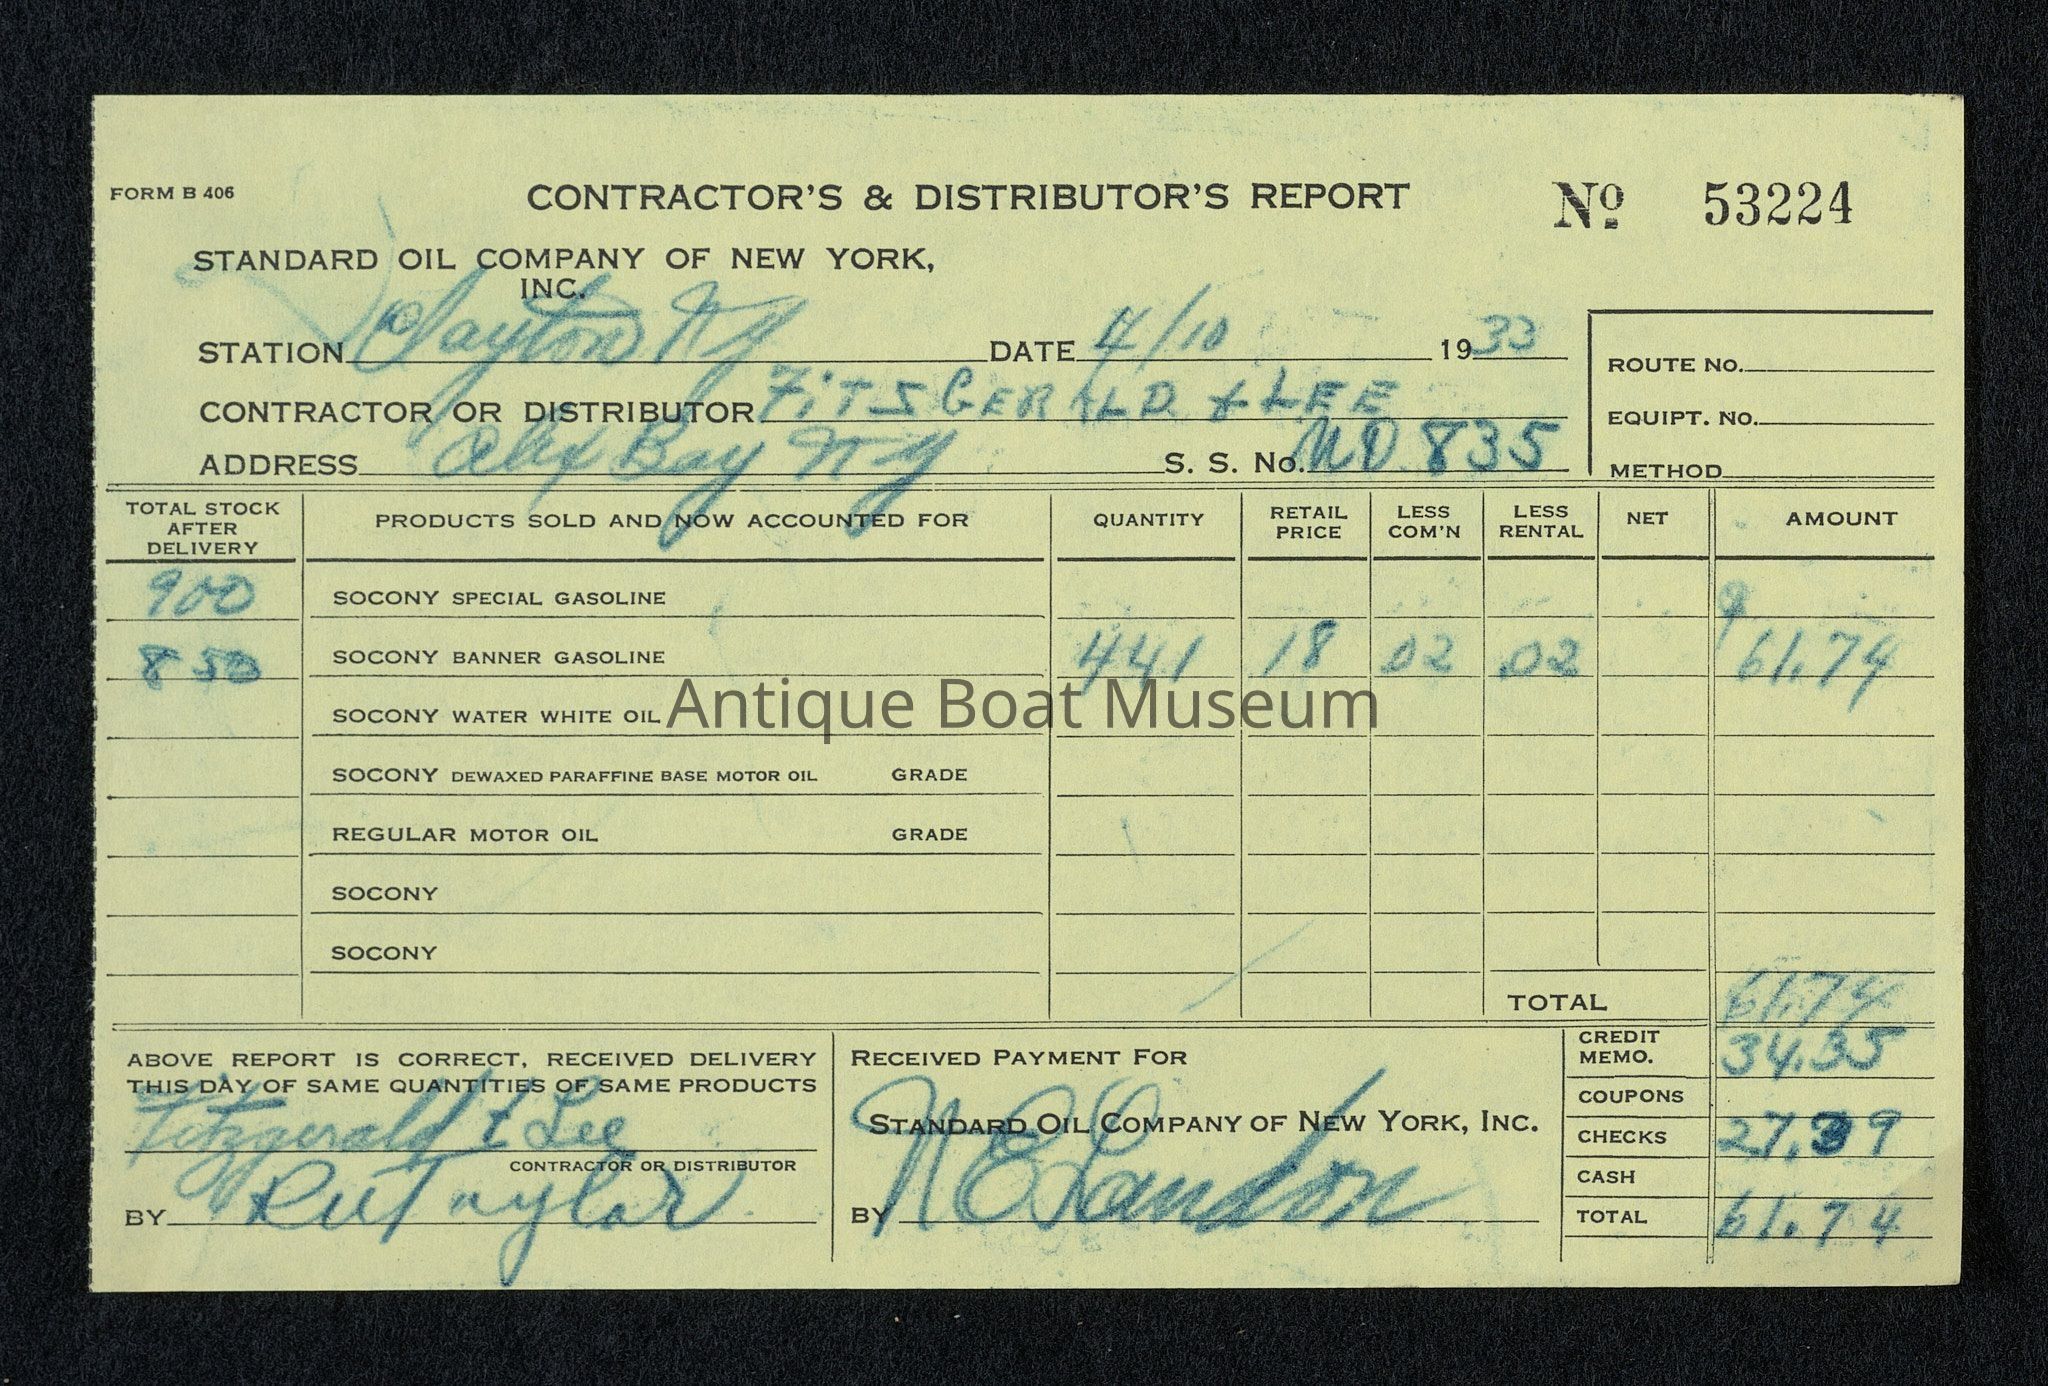 FORM B 406
CONTRACTOR'S & DISTRIBUTOR'S REPORT
No 53224
STANDARD OIL COMPANY OF NEW YORK,
INC.
STATION Clayton N Y DATE 4/10 1933
ROUTE No.
CONTRACTOR OR DISTRIBUTOR FITSGERALD & LEE
EQUIPT. No.
ADDRESS Alex Bay N Y S. S. No. MD 835
METHOD
TOTAL STOCK AFTER DELIVERY PRODUCTS SOLD AND NOW ACCOUNTED FOR QUANTITY RETAIL PRICE LESS COM'N LESS RENTAL NET AMOUNT
900 SOCONY SPECIAL GASOLINE
850 SOCONY BANNER GASOLINE 441 18 .02 .02 61.74
SOCONY WATER WHITE OIL
Antique Boat Museum
SOCONY DEWAXED PARAFFINE BASE MOTOR OIL GRADE
REGULAR MOTOR OIL GRADE
SOCONY
SOCONY
TOTAL 61.74
ABOVE REPORT IS CORRECT, RECEIVED DELIVERY
THIS DAY OF SAME QUANTITIES OF SAME PRODUCTS
Fitzgerald & Lee
CONTRACTOR OR DISTRIBUTOR
BY Taylor
RECEIVED PAYMENT FOR
STANDARD OIL COMPANY OF NEW YORK, INC.
BY N E Landon
CREDIT MEMO. 34.35
COUPONS
CHECKS 27.39
CASH
TOTAL 61.74